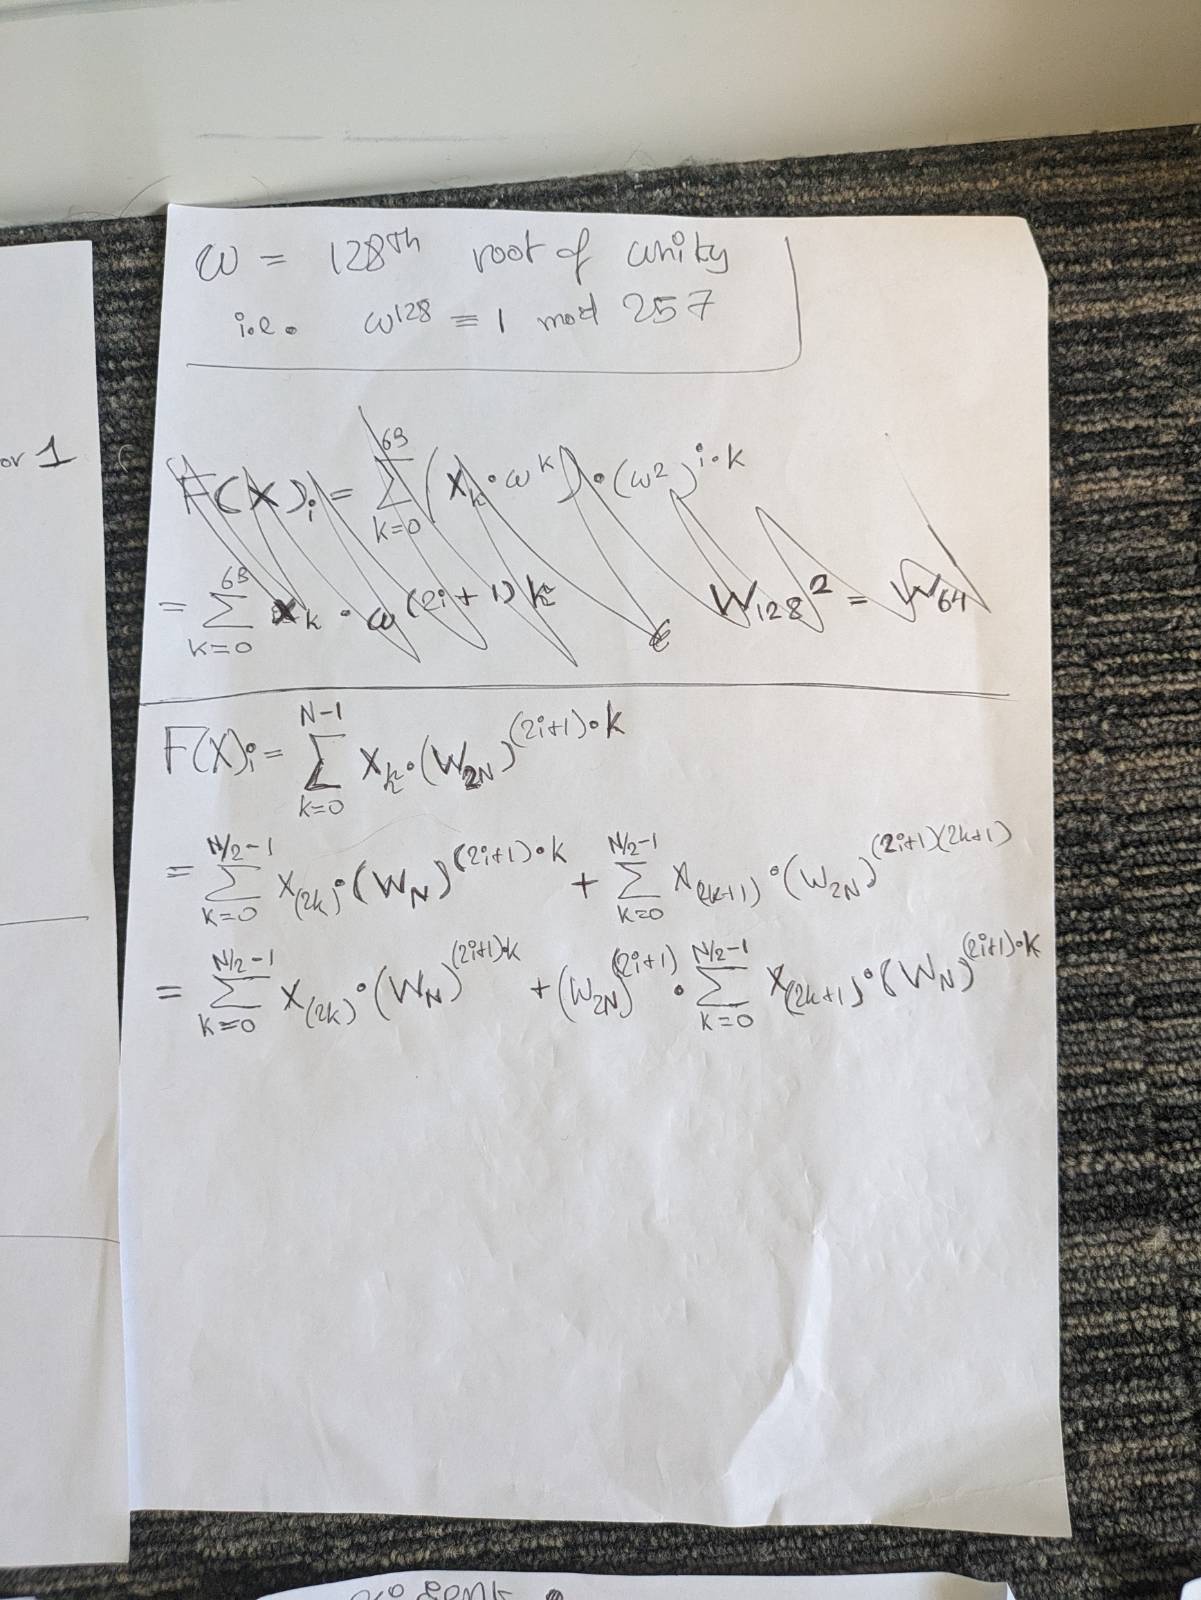 ω = 128th root of unity
i.e. ω^128 ≡ 1 mod 257
or 1
F(X)_i = Σ_{k=0}^{63} (X_k · ω^k) · (ω^2)^{i·k}
= Σ_{k=0}^{63} X_k · ω^{(2i+1)k} W_128^2 = W_64
F(X)_i = Σ_{k=0}^{N-1} X_k · (W_2N)^{(2i+1)·k}
= Σ_{k=0}^{N/2-1} X_(2k) · (W_N)^{(2i+1)·k} + Σ_{k=0}^{N/2-1} X_(2k+1) · (W_2N)^{(2i+1)(2k+1)}
= Σ_{k=0}^{N/2-1} X_(2k) · (W_N)^{(2i+1)·k} + (W_2N)^{(2i+1)} · Σ_{k=0}^{N/2-1} X_(2k+1) · (W_N)^{(2i+1)·k}